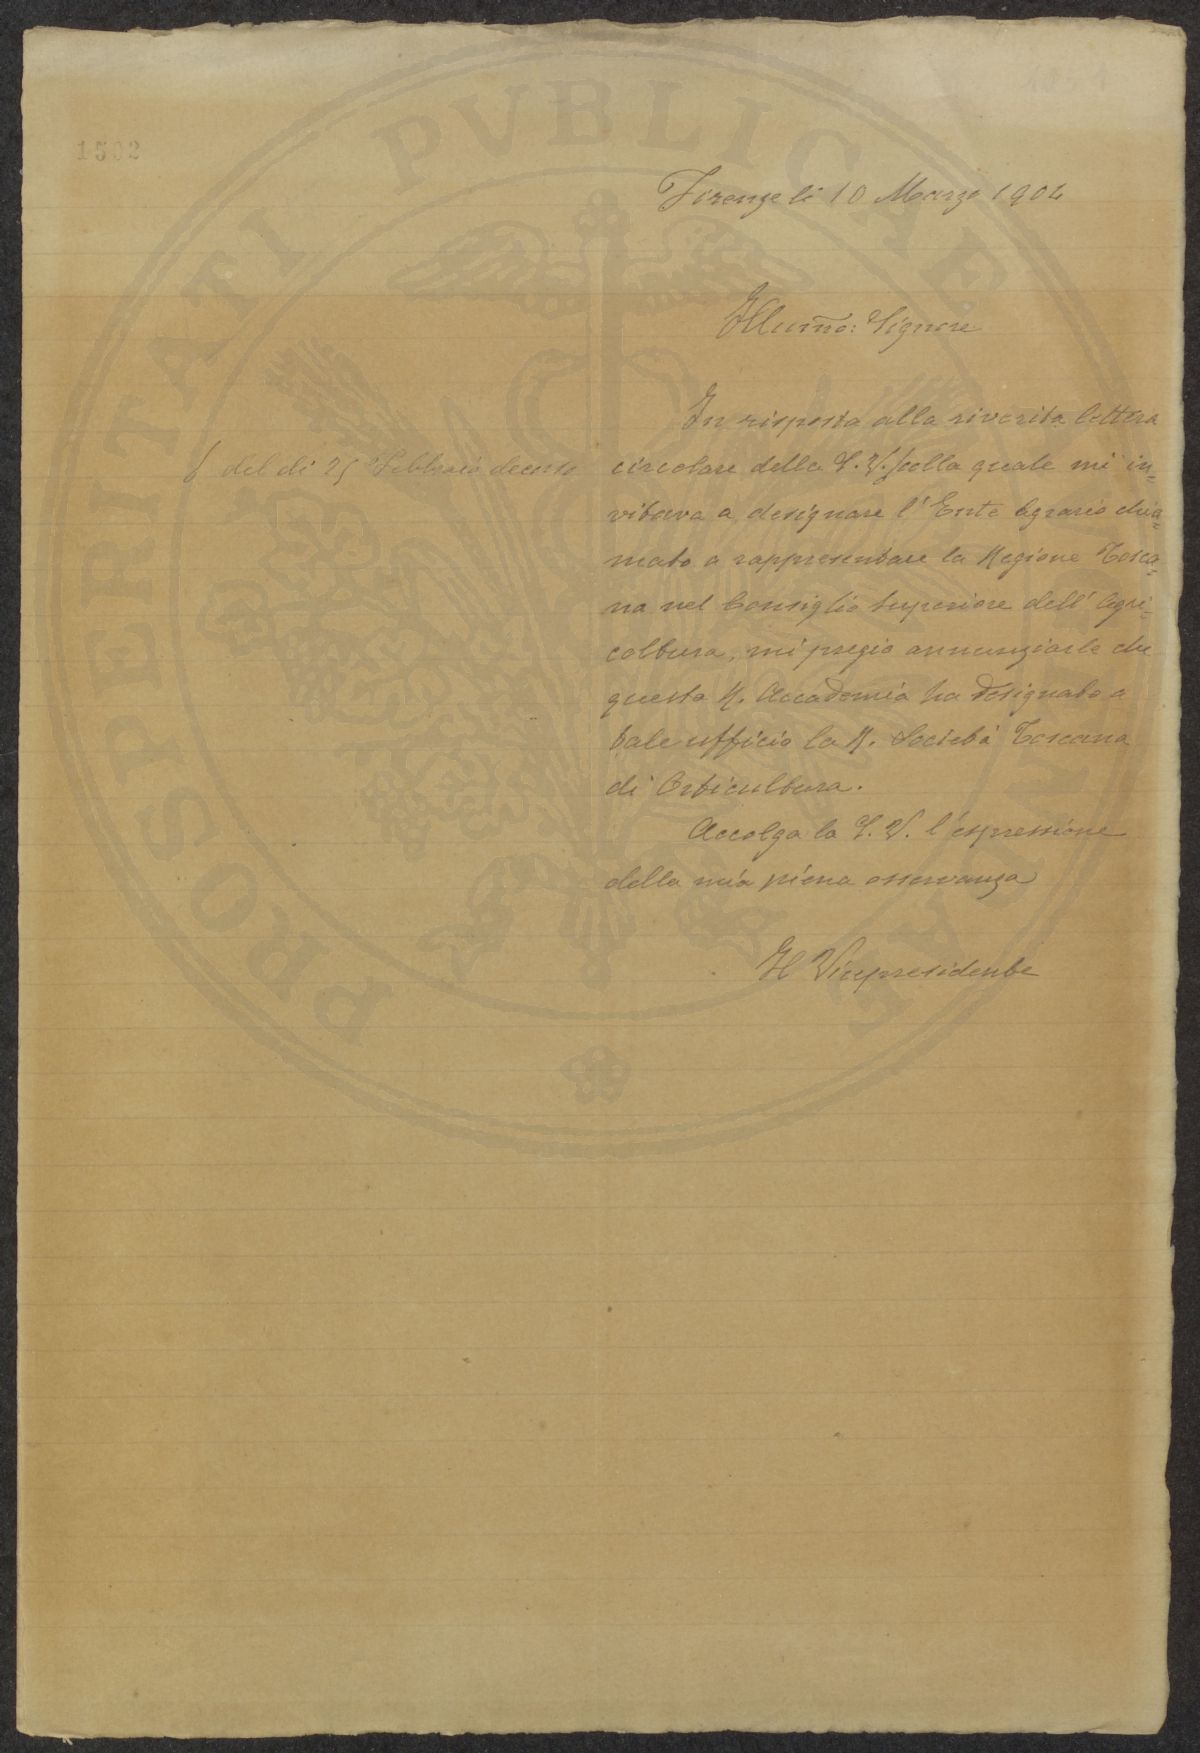 1502
Firenze li 10 Marzo 1904
Illumo: Signore
In risposta alla riverita lettera
del di 25 Febbraio decorso
circolare della S. V. colla quale mi in=
vitava a designare l'Ente Agrario chia=
mato a rappresentare la Regione Tosca=
na nel Consiglio Superiore dell'Agri=
coltura, mi pregio annunziarle che
questa R. Accademia ha designato a
tale ufficio la R. Società Toscana
di Orticultura.
Accolga la S. V. l'espressione
della mia piena osservanza
Il Vicepresidente
PROSPERITATI PVBLICAE